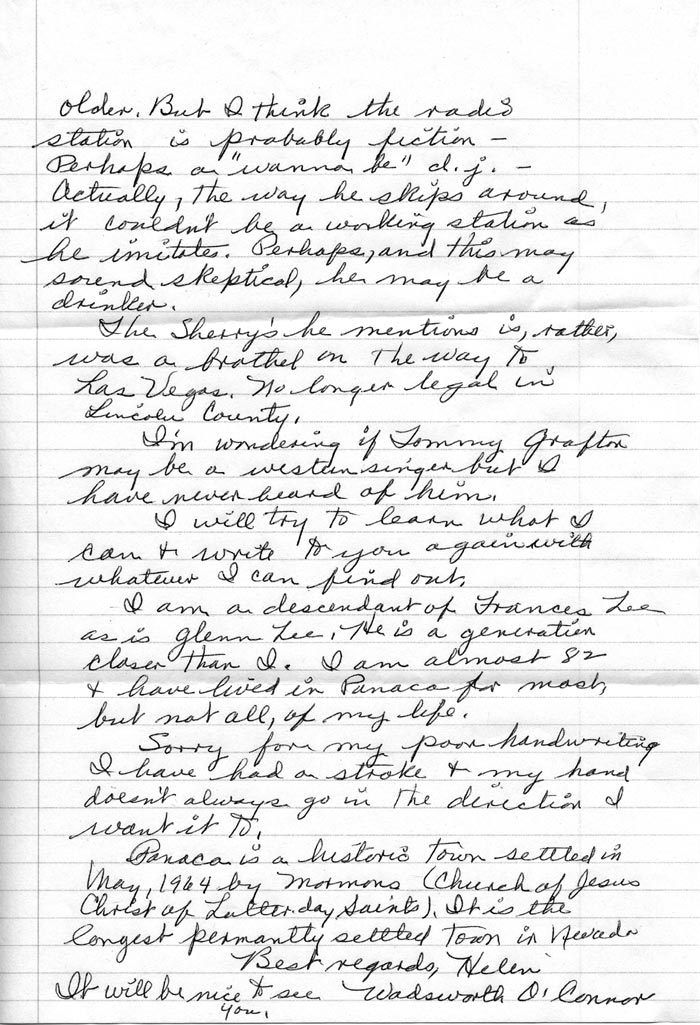 older. But I think the radio
station is probably fiction –
Perhaps a "wanna be" d.j. –
Actually, the way he skips around,
it couldn't be a working station as
he imitates. Perhaps, and this may
sound skeptical, he may be a
drinker.
The Sherry's he mentions is, rather,
was a brothel on the way to
Las Vegas. No longer legal in
Lincoln County.
I'm wondering if Tommy Grafton
may be a western singer but I
have never heard of him.
I will try to learn what I
can & write to you again with
whatever I can find out.
I am a descendant of Frances Lee
as is Glenn Lee. He is a generation
closer than I. I am almost 82
& have lived in Panaca for most,
but not all, of my life.
Sorry for my poor handwriting
I have had a stroke & my hand
doesn't always go in the direction I
want it to.
Panaca is a historic town settled in
May, 1964 by Mormons (Church of Jesus
Christ of Latter day Saints). It is the
longest permantly settled town in Nevada
Best regards, Helen
Wadsworth O'Connor
It will be nice to see
you.